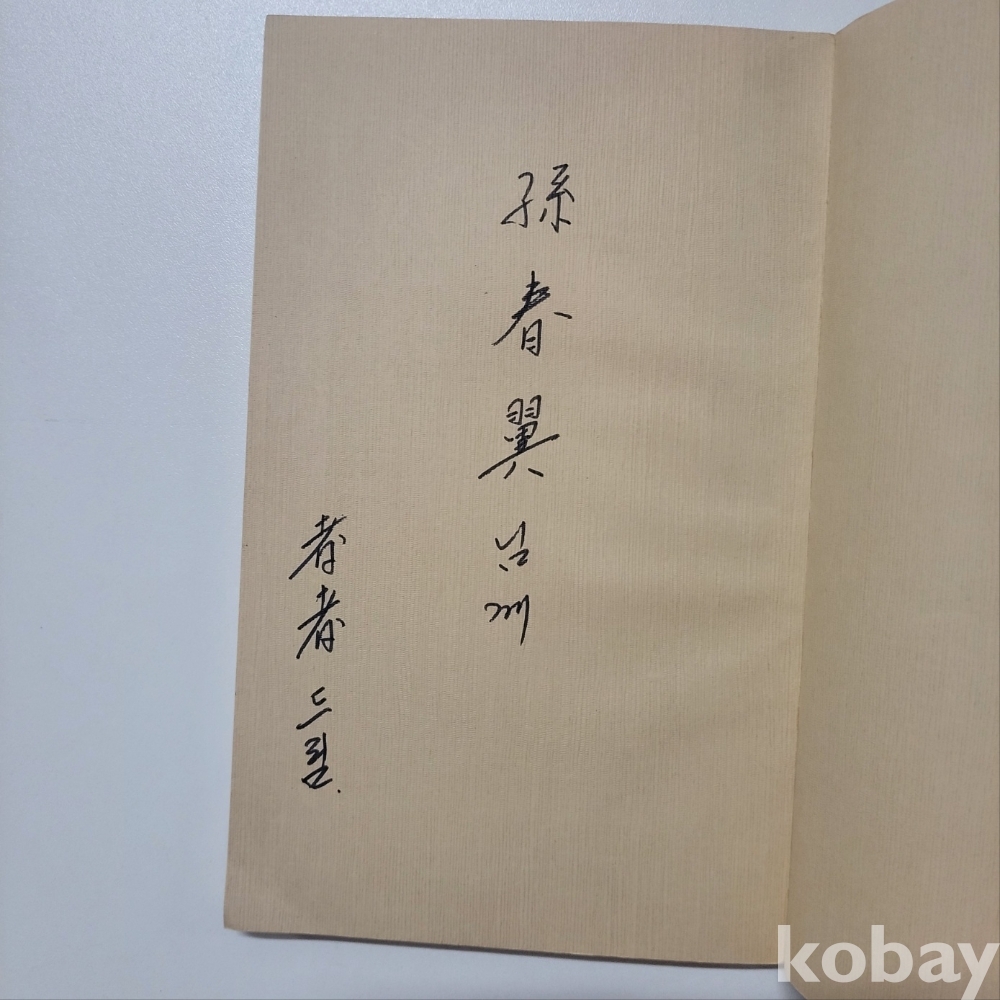 孫春翼 님께
著者 드림.
kobay